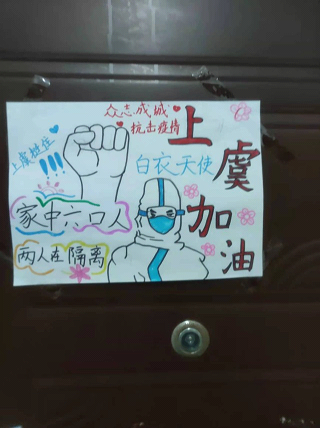 众志成城
抗击疫情
上虞
加油
上虞胜任
!!!
白衣天使
家中六口人
两人在隔离